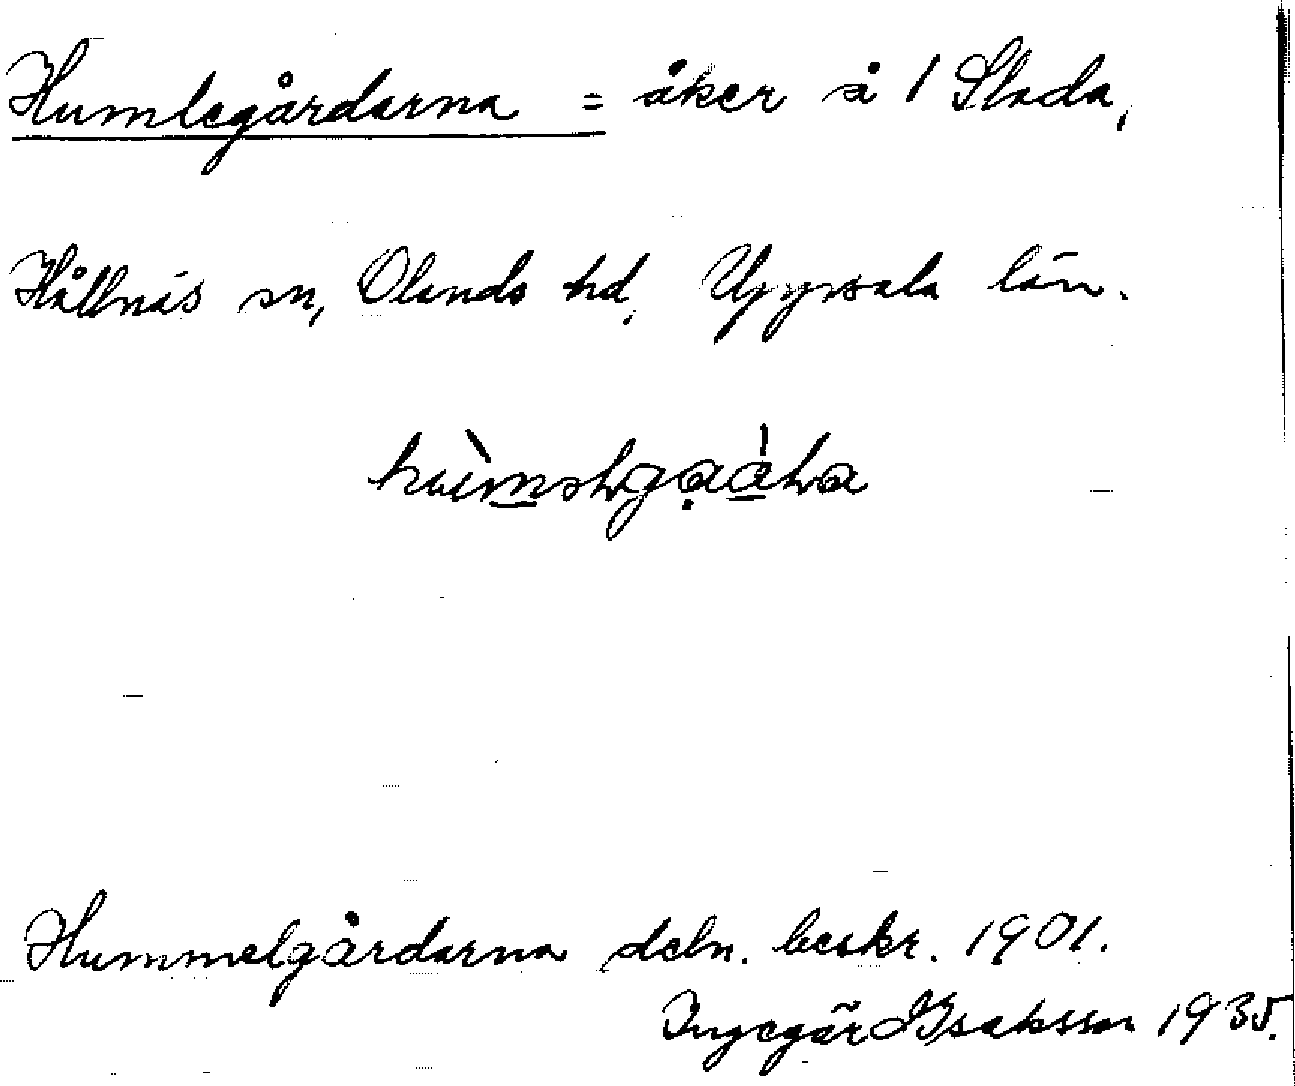 Humlegårdarna = åker å 1 Slada,
Hållnäs sn, Olands hd, Uppsala län.
Hummelgårdarna deln. beskr. 1901.
Ingegär Isaksson 1935.